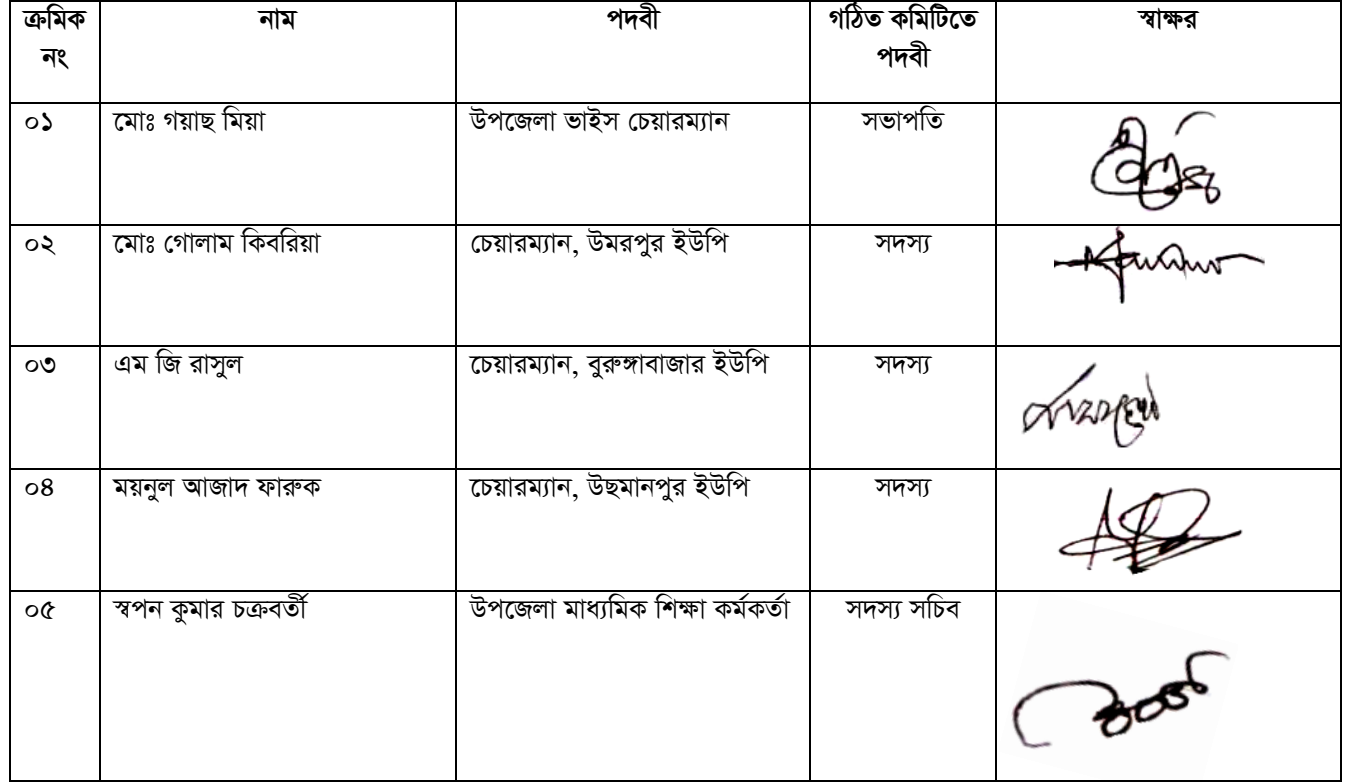 ক্রমিক নং নাম পদবী গঠিত কমিটিতে পদবী স্বাক্ষর
০১ মোঃ গয়াছ মিয়া উপজেলা ভাইস চেয়ারম্যান সভাপতি
০২ মোঃ গোলাম কিবরিয়া চেয়ারম্যান, উমরপুর ইউপি সদস্য
০৩ এম জি রাসুল চেয়ারম্যান, বুরুঙ্গাবাজার ইউপি সদস্য
০৪ ময়নুল আজাদ ফারুক চেয়ারম্যান, উছমানপুর ইউপি সদস্য
০৫ স্বপন কুমার চক্রবর্তী উপজেলা মাধ্যমিক শিক্ষা কর্মকর্তা সদস্য সচিব